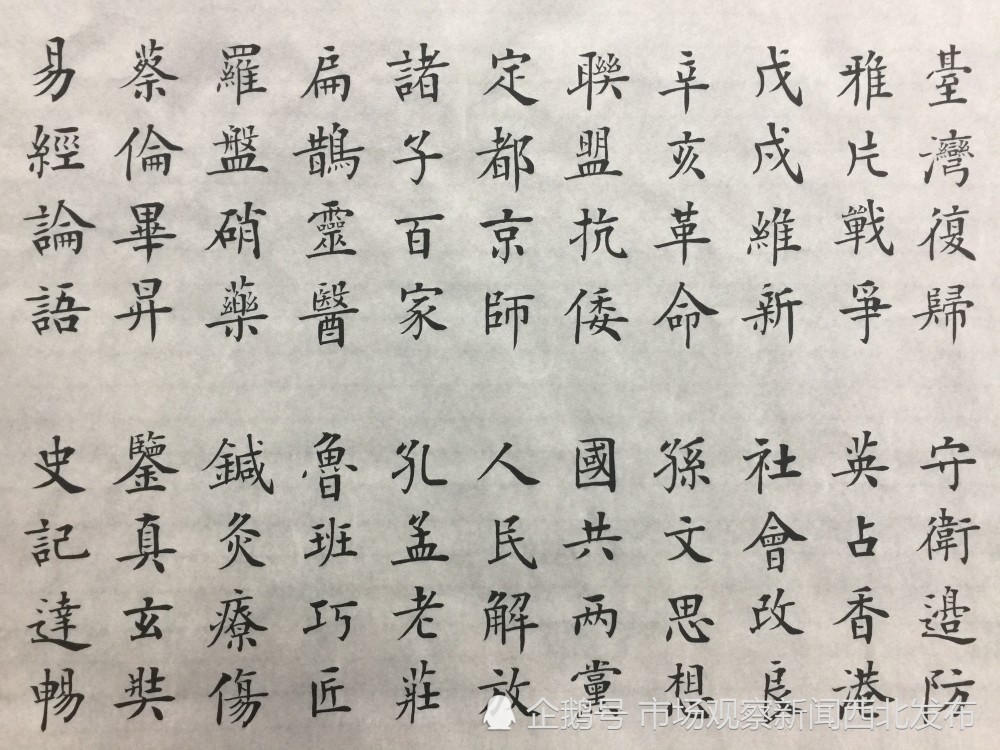 臺灣復歸 守衛邊防
雅片戰爭 英占香港
戊戌維新 社會改良
辛亥革命 孫文思想
聯盟抗倭 國共两黨
定都京師 人民解放
諸子百家 孔孟老莊
扁鵲靈醫 魯班巧匠
羅盤硝藥 鍼灸療傷
蔡倫畢昇 鑒真玄奘
易經論語 史記達暢
企鹅号 市场观察新闻西北发布